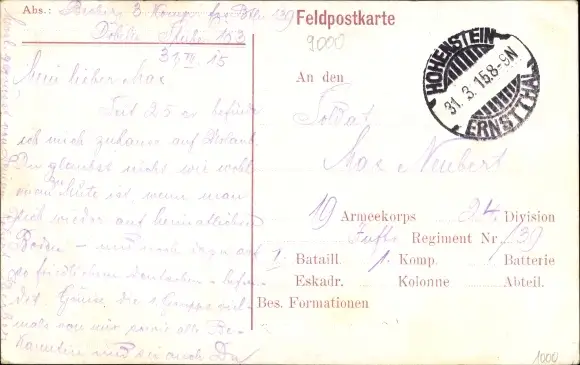 Abs.: Becker, 3. Komp. Btl. 139
Döbeln 153
31. III. 15
Mein lieber Max
Seit 25 er befinde
ich mich zuhause auf Urlaub.
Du glaubst nicht wie wohl
einem zu Mute ist, wenn man
sich wieder auf heimatlichem
Boden – und noch dazu auf
so friedlichem deutschen – befin-
det. Grüsse die Gruppe viel-
mals von mir sowie alle Be-
kannten und sei auch Du
Feldpostkarte
9000
HOHENSTEIN
31. 3. 15. 8-9N
ERNSTTHAL
An den
Soldat
Max Neubert
19 Armeekorps 24. Division
Inftr. Regiment Nr. 139
1. Bataill. 1. Komp. Batterie
Eskadr. Kolonne Abteil.
Bes. Formationen
1000